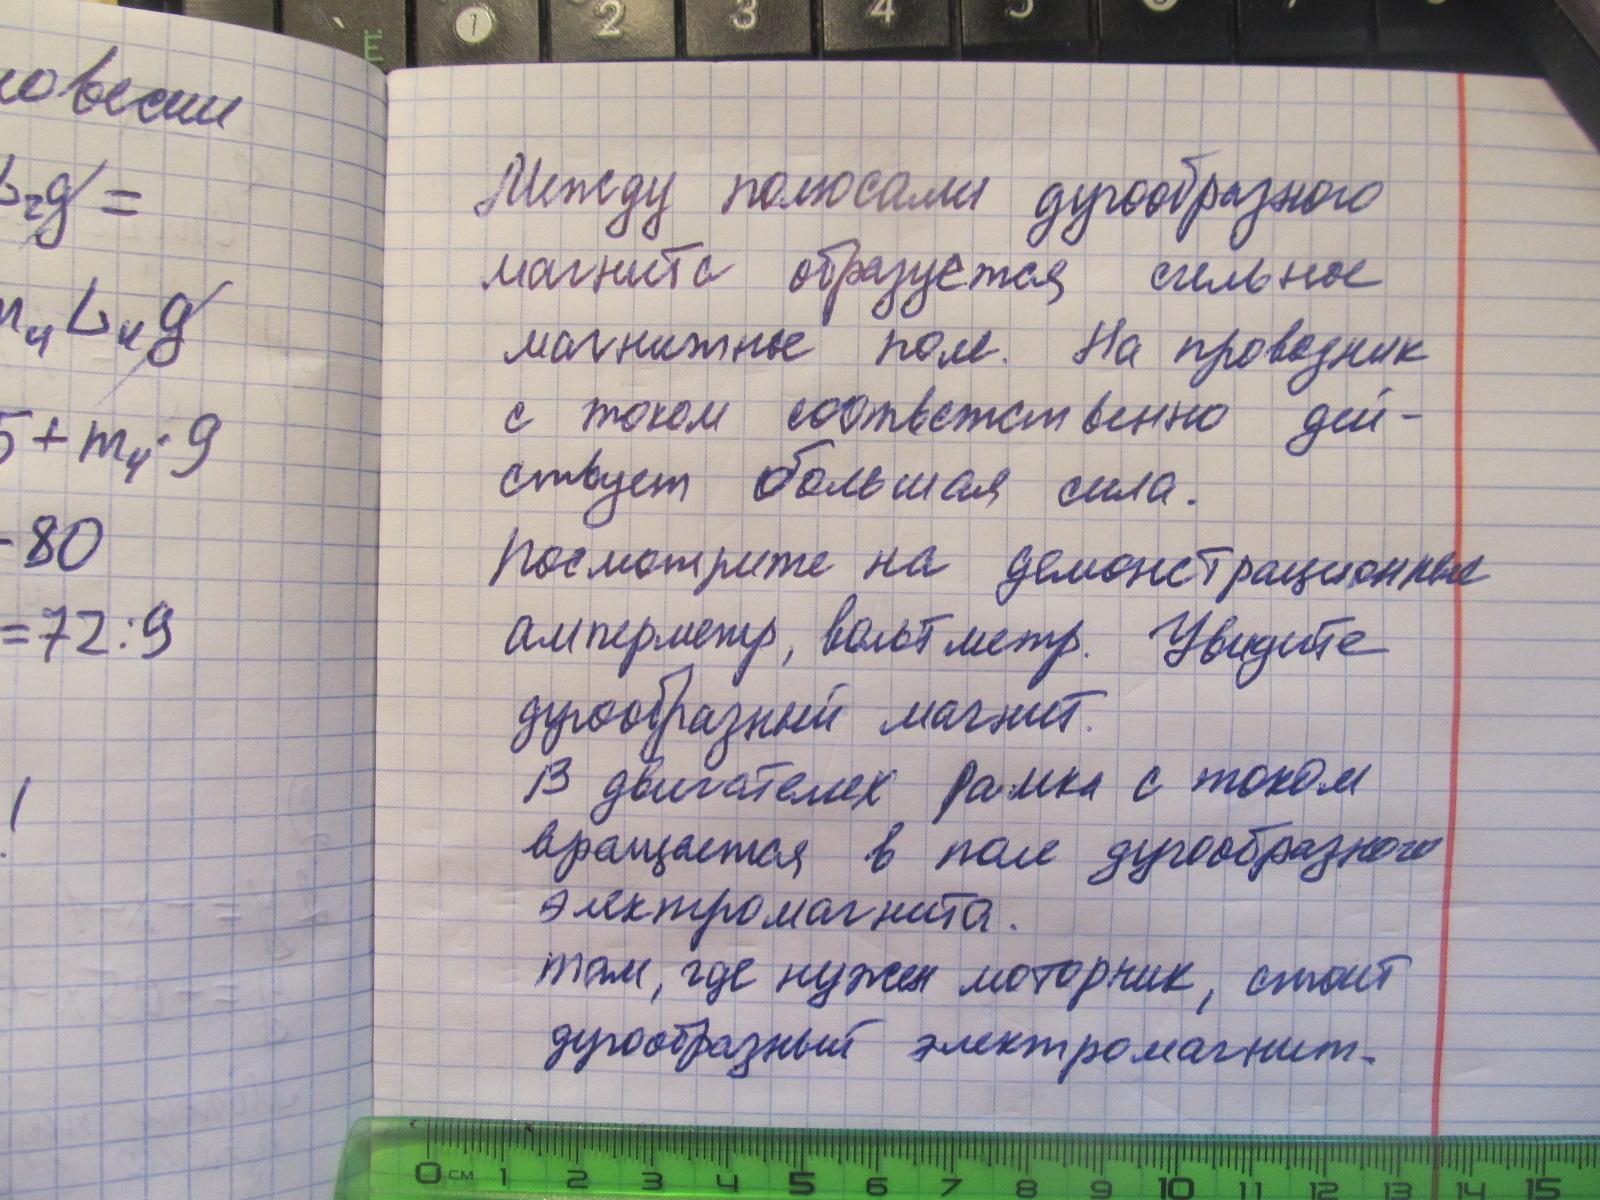 E 1 2 3 4 5
новесии
L₂g =
m₄ L₄ g
5 + m₄·9
-80
=72:9
!
Между полюсами дугообразного
магнита образуется сильное
магнитное поле. На проводник
с током соответственно дей-
ствует большая сила.
Посмотрите на демонстрационные
амперметр, вольтметр. Увидите
дугообразный магнит.
В двигателях рамка с током
вращается в поле дугообразного
электромагнита.
Там, где нужен моторчик, стоит
дугообразный электромагнит.
0 см 1 2 3 4 5 6 7 8 9 10 11 12 13 14 15